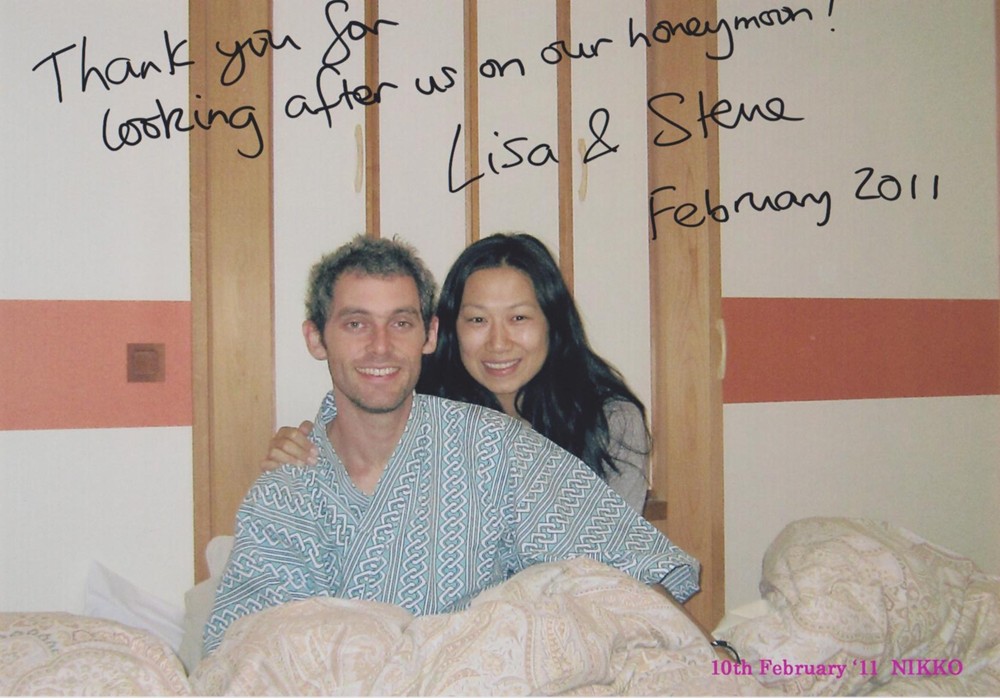 Thank you for
looking after us on our honeymoon!
Lisa & Steve
February 2011
10th February '11 NIKKO